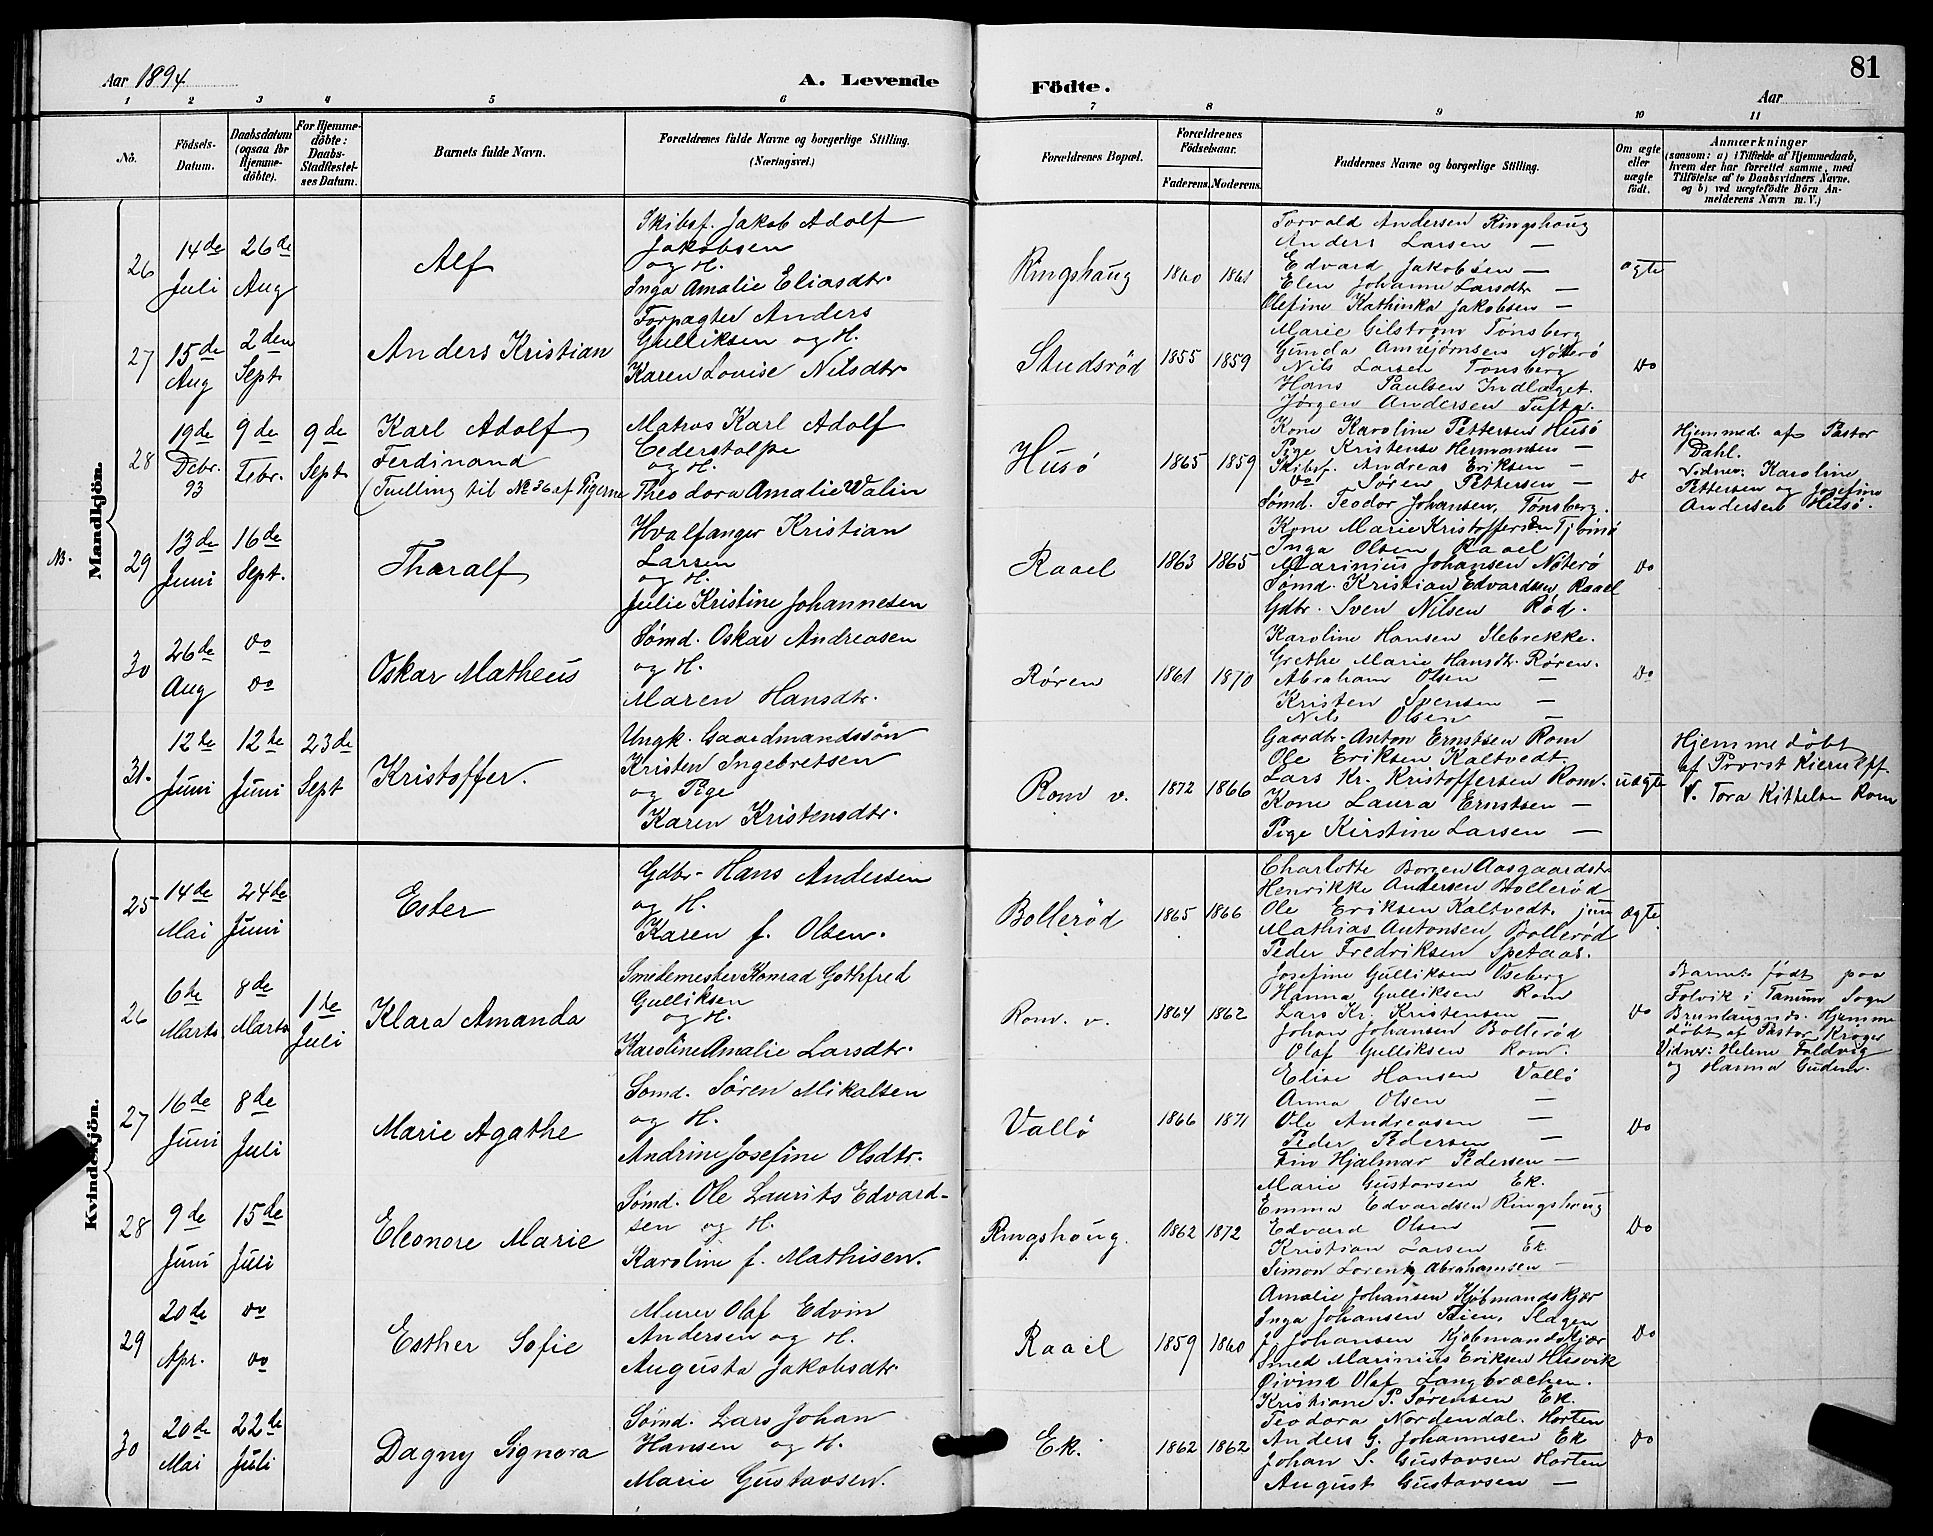 Aar 1894.
A. Levende
Födte.
Aar
81
1 2 3 4 5 6 7 8 9 10 11
No.
Födsels-Datum.
Daabsdatum (ogsaa for Hjemme-döbte).
For Hjemme-döbte: Daabs-Stadfæstel-ses Datum.
Barnets fulde Navn.
Forældrenes fulde Navne og borgerlige Stilling. (Næringsvei.)
Forældrenes Bopæl.
Forældrenes Födselsaar.
Faderens. Moderens.
Faddernes Navne og borgerlige Stilling.
Om ægte eller uægte födt.
Anmærkninger
(saasom: a) i Tilfælde af Hjemmedaab,
hvem der har forrettet samme, med
Tilföielse af to Daabsvidners Navne,
og b) ved uægtefödte Börn An-
melderens Navn m. V.)
Mandkjön.
26
14de Juli
26de Aug
Alf
Skibsf. Jakob Adolf
Jakobsen
og H.
Inga Amalie Eliasdtr.
Ringshaug
1860 1861
Torvald Andersen Ringshaug
Anders Larsen —
Edvard Jakobsen —
Elen Johanne Larsdtr —
Olefine Kathinka Jakobsen —
ægte
27
15de Aug
2den Sept.
Anders Kristian
Forpagter Anders
Gulliksen og H.
Karen Lovise Nilsdtr.
Studsröd
1855 1859
Marie Gilström Tønsberg
Gunda Arnbjørnsen Nöterö
Nils Larsen Tønsberg
Hans Paulsen Indlaget.
Jørgen Andersen Tufta.
Do
28
19de Debr. 93
9de Febr.
9de Sept
Karl Adolf
Ferdinand
(Tvilling til No 36 af Pigerne
Matros Karl Adolf
Cederstolpe
og H.
Theodora Amalie Walin
Husö
1865 1859
Kone Karoline Pettersen Husö
Pige Kristense Hermansen —
Skibsf. Andreas Eriksen —
Do Sören Pettersen —
Sømd. Teodor Johansen, Tønsberg.
Do
Hjemmed. af Pastor
Dahl.
Vidner: Karoline
Pettersen og Josefine
Andersen Husö.
NB.
29
13de Juni
16de Sept.
Tharalf
Hvalfanger Kristian
Larsen
og H.
Julie Kristine Johannesen
Raael
1863 1865
Kone Marie Kristoffersen Tjömö
Inga Olsen Raael
Marinius Johansen Nöterö
Sømd. Kristian Edvardsen, Raael
Gdbr. Sven Nilsen Röd.
Do
30
26de Aug
Do Do
Oskar Matheus
Sømd. Oskar Andreasen
og H.
Maren Hansdtr.
Røren
1861 1870
Karoline Hansen Ilebrekke.
Grethe Marie Hansdtr. Røren.
Abraham Olsen —
Kristen Svensen —
Nils Olsen —
Do
31.
12te Juni
12te Juni
23de Sept
Kristoffer.
Ungk. Gaardmandssön
Kristen Ingebretsen
og Pige
Karen Kristensdtr.
Rom v.
1872 1866
Gaardbr. Anton Ernstsen Rom
Ole Eriksen Kaltvedt.
Lars Kr. Kristoffersen Rom.
Kone Laura Ernstsen —
Pige Kirstine Larsen —
uægte
Hjemmedøbt
af Provst Kierulf
V. Tora Kittelsen Rom
Kvindekjön.
25
14de Mai
24de Juni
Ester
Gdbr. Hans Andersen
og H.
Karen f. Olsen.
Bolleröd
1865 1866
Charlotte Borgen Aasgaardstr
Henrikke Andersen Bolleröd
Ole Eriksen Kaltvedt. jun
Mathias Antonsen, Bolleröd
Peder Fredriksen Spetaas.
ægte
26
6te Marts
8de Marts
1te Juli
Klara Amanda
Smedemester Konrad Gothfred
Gulliksen
og H.
Karoline Amalie Larsdtr.
Rom. v.
1864 1862
Josefine Gulliksen Oseberg
Hanna Gulliksen Rom
Lars Kr. Kristensen —
Johan Johansen Bolleröd
Olaf Gulliksen Rom.
Do
Barnet født paa
Folvik i Tanum Sogn
Brunlangnds. Hjemme
döbt af Pastor Kröger
Vidner: Helene Foldvig
og Hanna Gudem.
27
16de Juni
8de Juli
Marie Agathe
Sømd. Sören Mikalsen
og H.
Andrine Josefine Olsdtr.
Vallö
1866 1871
Elise Hansen Vallö
Anna Olsen —
Ole Andreasen —
Peder Pedersen —
Fin Hjalmar Pedersen —
Do
28
9de Juni
15de Juli
Eleonore Marie
Sømd. Ole Laurits Edvard-
sen og H.
Karoline f. Mathisen.
Ringshoug.
1862 1872
Marie Gustavsen Ek.
Emma Edvardsen Ringshoug
Edvard Olsen —
Kristian Larsen Ek.
Simon Lorentz Abrahamsen —
Do
29
20de Apr.
Do Do
Esther Sofie
Murer Olaf Edvin
Andersen og H.
Augusta Jakobsdtr
Raael
1859 1860
Amalie Johansen Kjöbmandskjær
Inga Johansen Teien, Slagen
J. Johansen Kjöbmandskjær
Smed Marinius Eriksen Husvik
Øivind Olaf Langbrachen.
Do
30
20de Mai
22de Juli
Dagny Signora
Sømd. Lars Johan
Hansen og H.
Marie Gustavsen.
Ek.
1862 1862
Kristiane P. Sörensen Ek.
Teodora Nordendal. Horten
Anders G. Johannesen Ek
Johan S. Gustavsen Horten
August Gustavsen —
Do